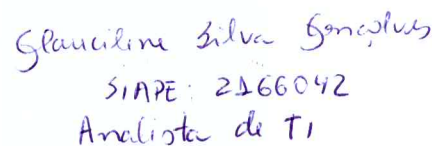 Glauciline Silva Gonçalves
SIAPE: 2166042
Analista de TI